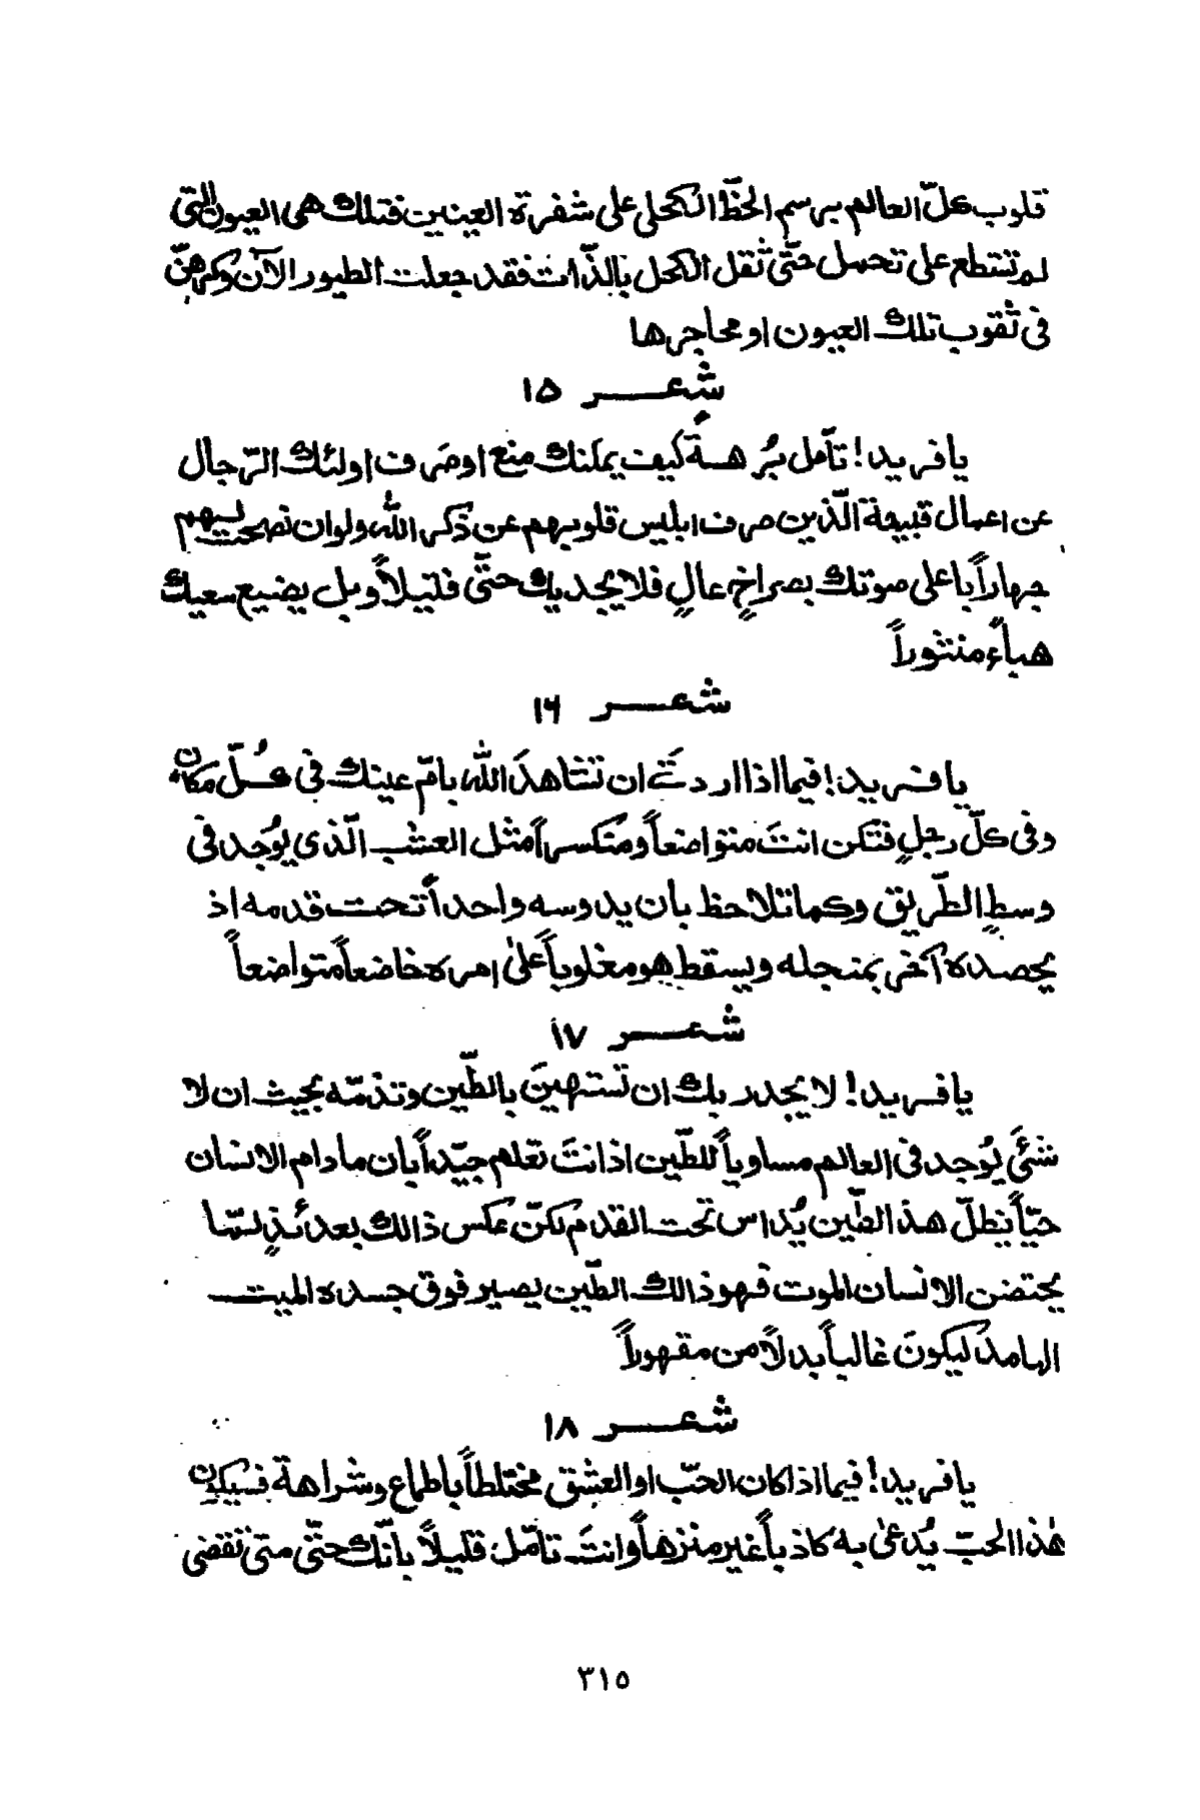 قلوب كلّ العالم برسم الخظّ الكحلى على شفرة العينين فتلك هى العيون الّتى
لم تستطع على تحمل حتّى ثقل الكحل بالذّات فقد جعلت الطيور الآن وكرهنّ
فى ثقوب تلك العيون او محاجرها
شعر ١٥
يا فريد! تأمل بُرهةً كيف يمكنك منع او صَرف اولئك الرّجال
عن اعمال قبيحة الّذين صرف ابليس قلوبهم عن ذكر الله ولو ان نصحت ليهم
جهاراً باعلى صوتك بصراخٍ عالٍ فلا يجديك حتّى فتيلاً وبل يضيع سعيك
هباءً منثوراً
شعر ١٦
يا فريد! فيما اذا اردتَ ان تشاهدَ الله بامّ عينك فى كُلّ مكان
وفى كلّ رجلٍ فتكن انتَ متواضعاً ومُتكسراً مثل العشب الّذى يُوجد فى
وسطِ الطّريق وكما تلاحظ بأن يدوسه واحداً تحت قدمه اذ
يحصده آخر بمنجله ويسقط هو مغلوباً علىٰ امره خاضعاً متواضعاً
شعر ١٧
يا فريد! لا يجدر بك ان تستهينَ بالطّين وتذمّه بحيث ان لا
شئَ يُوجد فى العالم مساوياً للطّين اذ انتَ تعلم جيّداً بان مادام الانسان
حيّاً يظلّ هذ الطّين يُداس تحت القدم لكنّ عكس ذالك بعدئذٍ لمّا
يحتضن الانسان الموت فهو ذالك الطّين يصير فوق جسده الميت
الهامد ليكونَ غالباً بدلاً من مقهوراً
شعر ١٨
يا فريد! فيما اذا كان الحبّ او العشق مختلطاً باطماع وشراهة فسيكون
هٰذا الحبّ يُدعىٰ به كاذباً غير منزهاً وانتَ تامّل قليلاً بانّك حتّى متىٰ تقضى
٣١٥